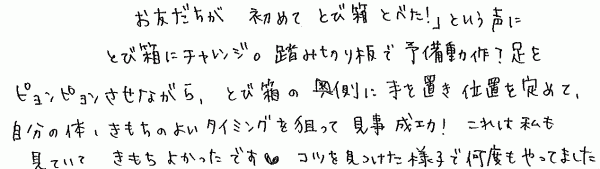 お友だちが 初めて とび箱 とべた!」という声に
とび箱にチャレンジ。踏みきり板で 予備動作?足を
ピョンピョンさせながら、とび箱の 奥側に 手を置き 位置を定めて、
自分の体、きもちのよいタイミングを狙って 見事 成功! これは私も
見ていて きもち よかったです♥ コツを見つけた様子で何度もやってました